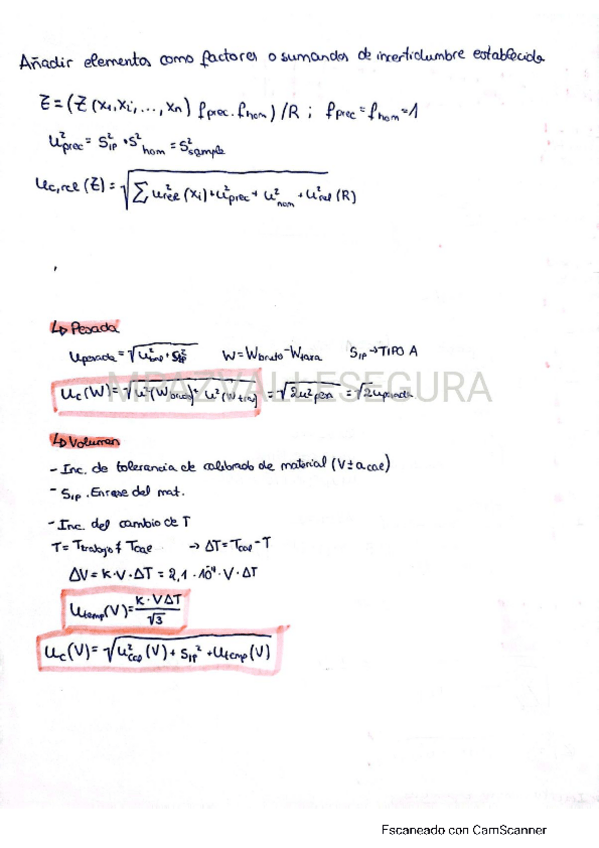 Añadir elementos como factores o sumandos de incertidumbre establecida
Z = (Z (x₁, xᵢ, ..., xₙ) fprec. fhom) / R ; fprec = fhom = 1
u²prec = S²IP + S²hom = S²sample
uc,rel (Z) = √(∑ u²rel (xᵢ) + u²prec + u²hom + u²rel (R))
↳ Pesada
upesada = √ W = Wbruto - Wtara SIP → TIPO A
uc (W) = √(u² (Wbruto) + u² (Wtara)) = √(2u²pes) = √2 upesada
MPAZVALLESEGURA
↳ Volumen
- Inc. de tolerancia de calibrado de material (V ± acal)
- SIP. Enrase del mat.
- Inc. del cambio de T
T = Ttrabajo ≠ Tcal → ΔT = Tcal - T
ΔV = K · V · ΔT = 2,1 · 10⁻⁴ · V · ΔT
utemp (V) = K · V ΔT / √3
uc (V) = √(u²cal (V) + SIP² + utemp (V))
Escaneado con CamScanner